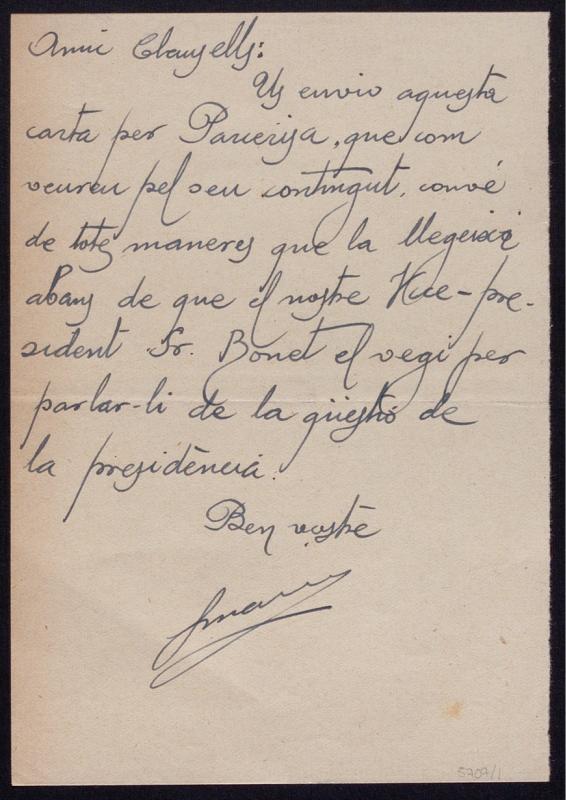 Amic Clausells:
Us envio aquesta
carta per Parcerisa, que com
veureu pel seu contingut, convé
de totes maneres que la llegeixi
abans de que el nostre Vice-pre-
sident Sr. Bonet el vegi per
parlar-li de la qüestió de
la presidència.
Ben vostre
5707/1